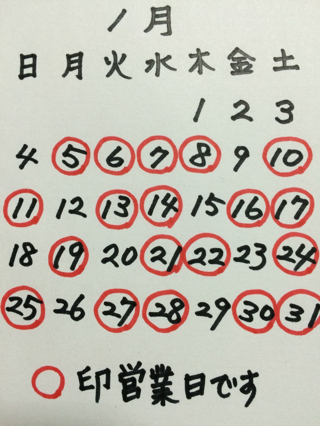 1月
日 月 火 水 木 金 土
1 2 3
4 5 6 7 8 9 10
11 12 13 14 15 16 17
18 19 20 21 22 23 24
25 26 27 28 29 30 31
○印営業日です